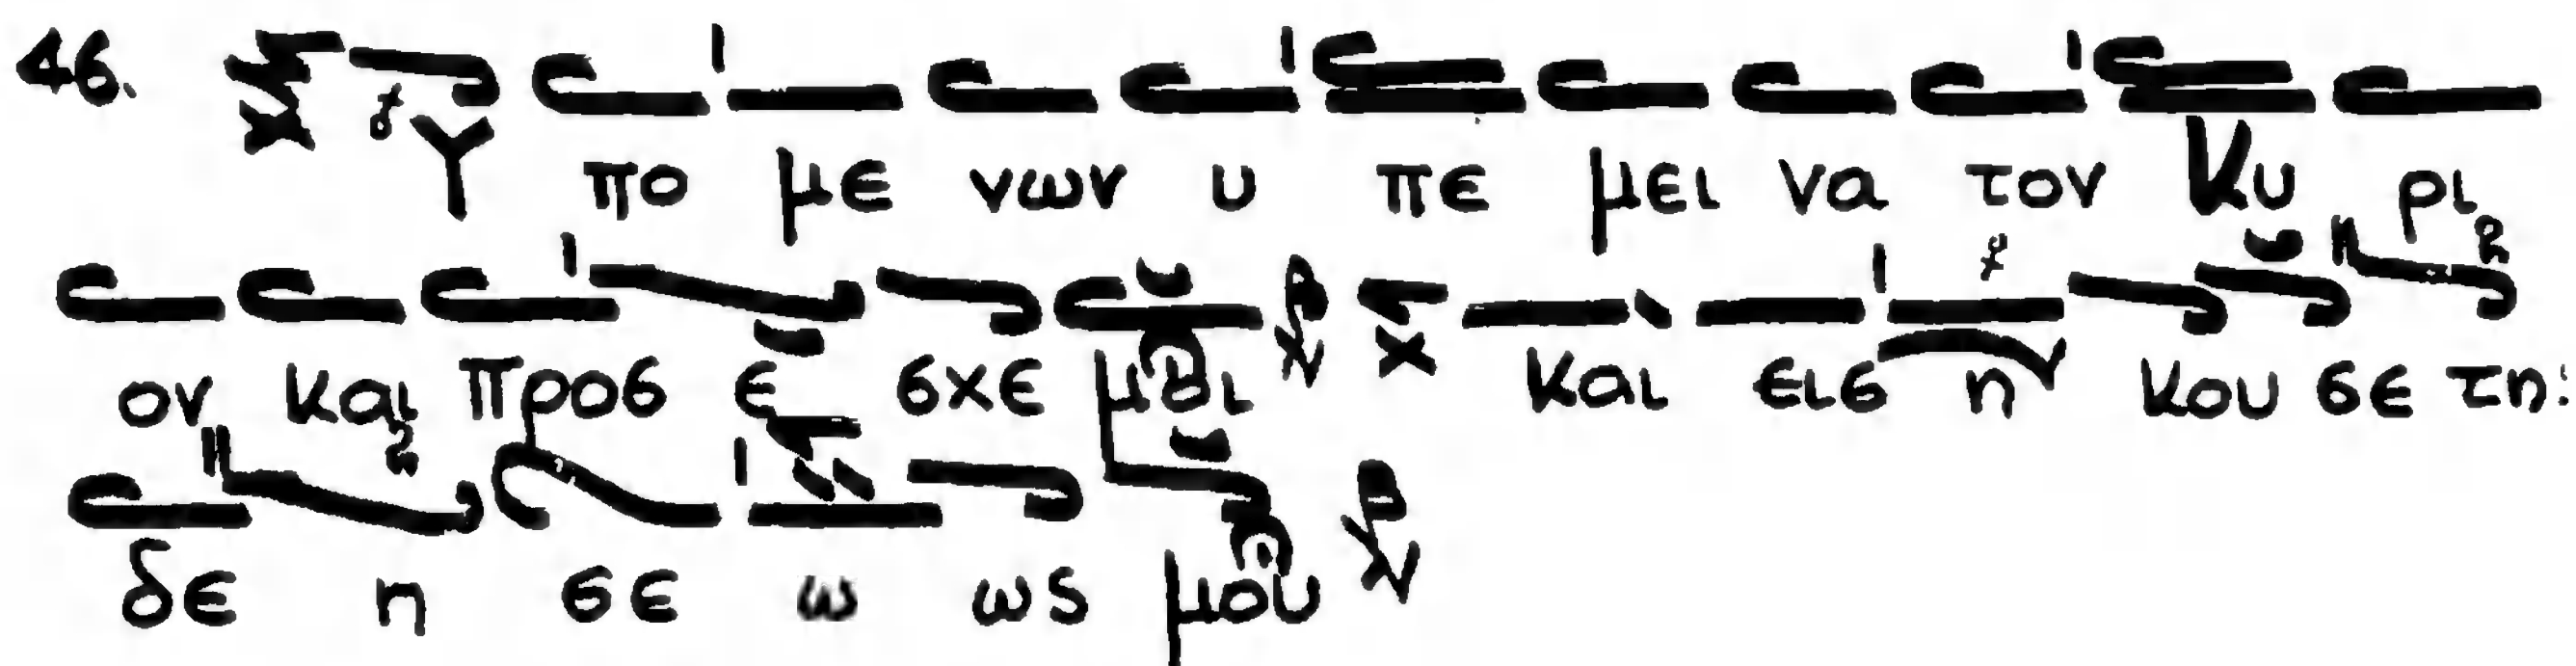 46. Υ πο με νων υ πε μει να τον Κυ ρι
ον και προσ ε σχε μοι και εισ η κου σε τη:
δε η σε ω ως μου